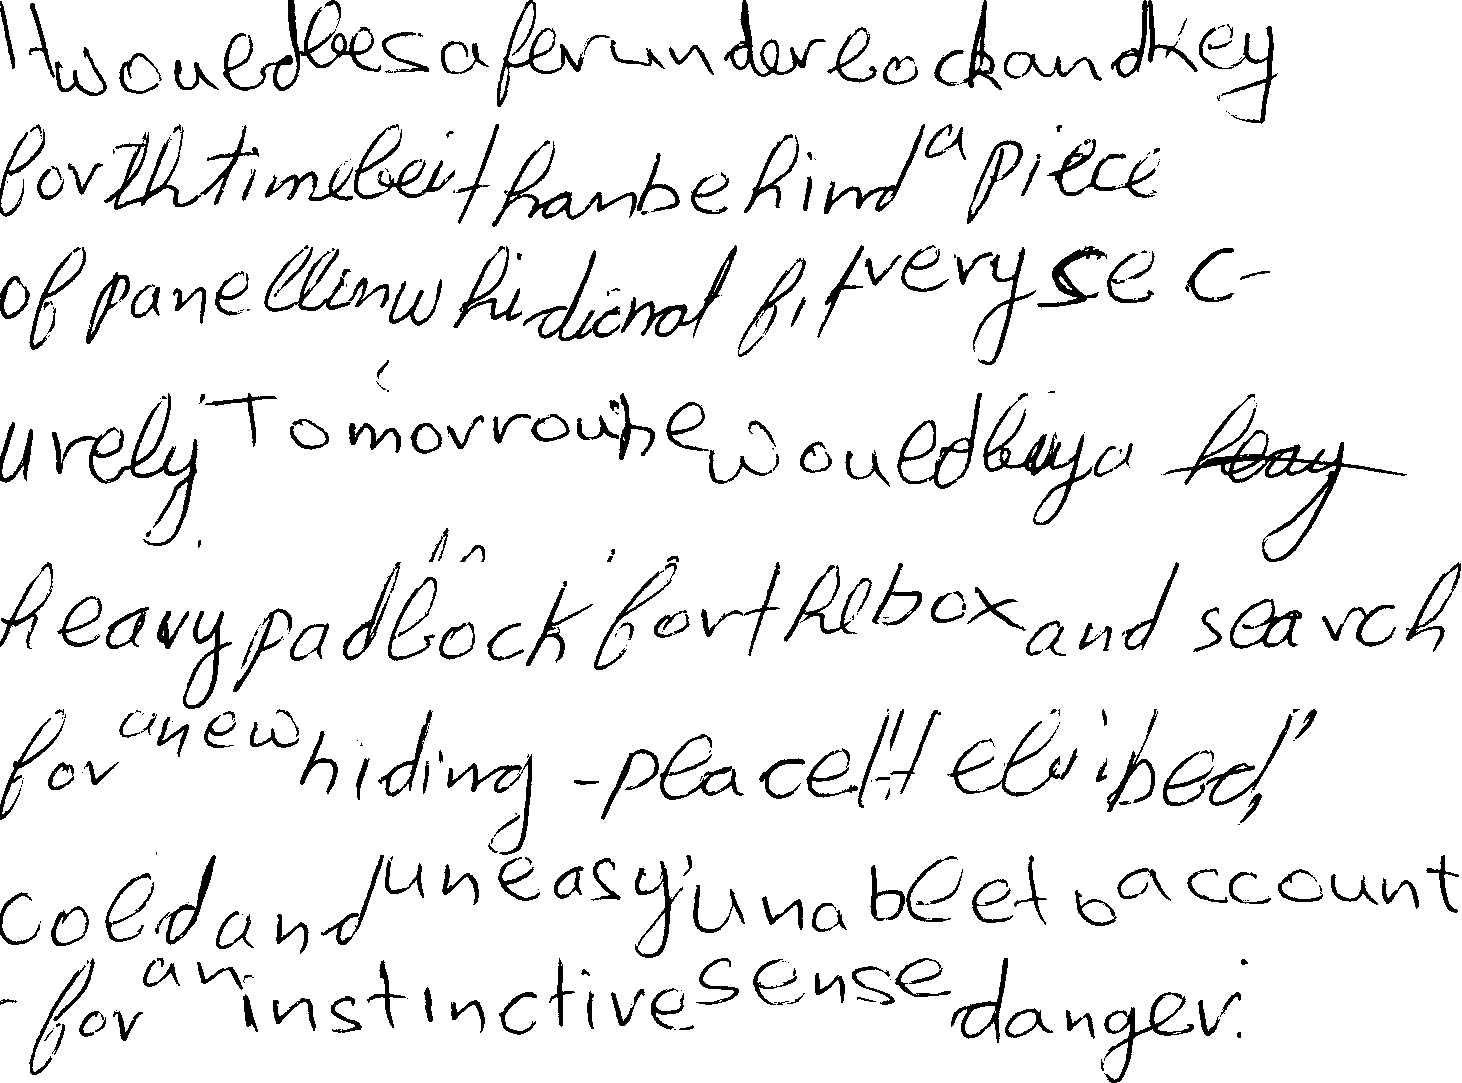 It would be safer under lock and key
for th time bei than behind a piece
of panellin whi did not fit very sec-
urely Tomorrow he would buy a
heavy padlock for the box and search
for a new hiding-place
cold and uneasy, unable to account
for an instinctive sense danger.